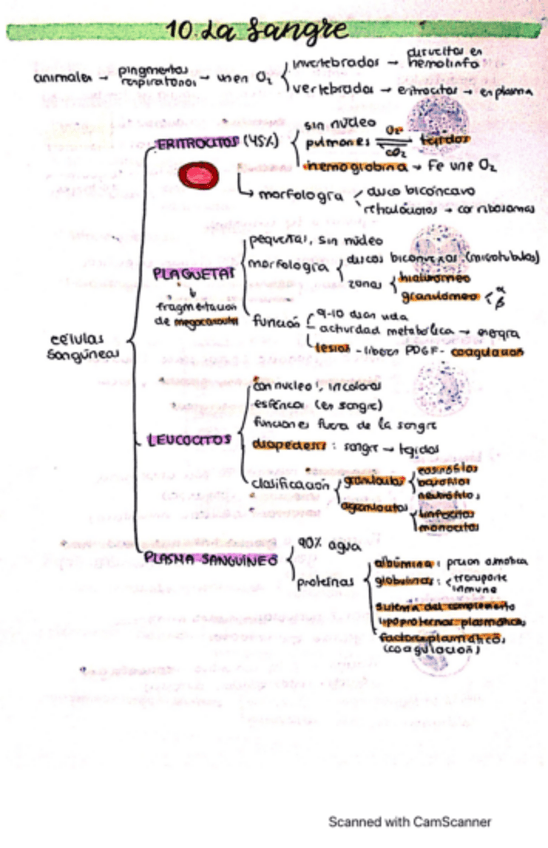 10. La Sangre
animales → pingmentos respiratorios → unen O₂
invertebrados → disueltos en hemolinfa
vertebrados → eritrocitos → en plasma
células sanguíneas
ERITROCITOS (45%)
sin núcleo
pulmones O₂ CO₂ tejidos
hemoglobina → Fe une O₂
→ morfología
disco bicóncavo
reticulocitos → con ribosomas
PLAQUETAS
↓
fragmentación de megacariocitos
pequeñas, sin núcleo
morfología
discos biconvexos (microtubulos)
zonas
hialómero
granulómero α β
función
9-10 dias vida
actividad metabolica → energia
lesion - liberan PDGF - coagulacion
LEUCOCITOS
con nucleo, incoloros
esféricos (en sangre)
funciones fuera de la sangre
diapedesis: sangre → tejidos
clasificación
granulocitos
eosinófilos
basófilos
neutrófilos
agranulocitos
linfocitos
monocitos
PLASMA SANGUÍNEO
90% agua
proteínas
albúmina: presion osmotica
globulinas:
transporte
inmune
sistema del complemento
lipoproteinas plasmáticas
factores plasmáticos
(coagulación)
Scanned with CamScanner